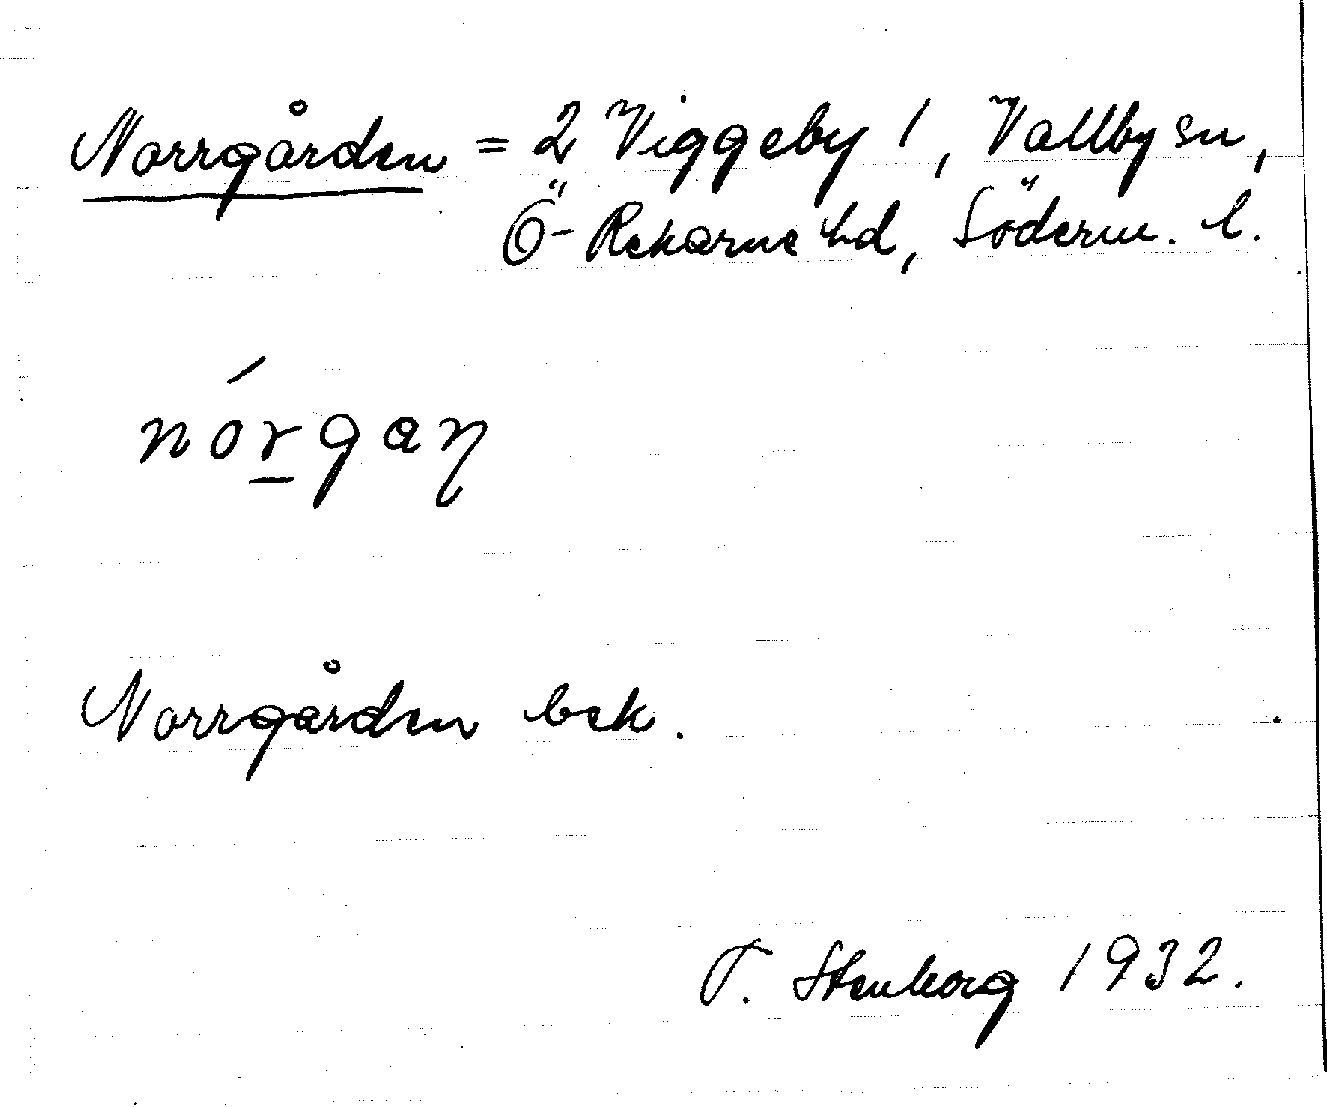 Norrgården = 2 Viggeby 1, Vallby sn,
Ö-Rekarne hd, Söderm. l.
nórgaɳ
Norrgården bek.
T. Stenborg 1932.